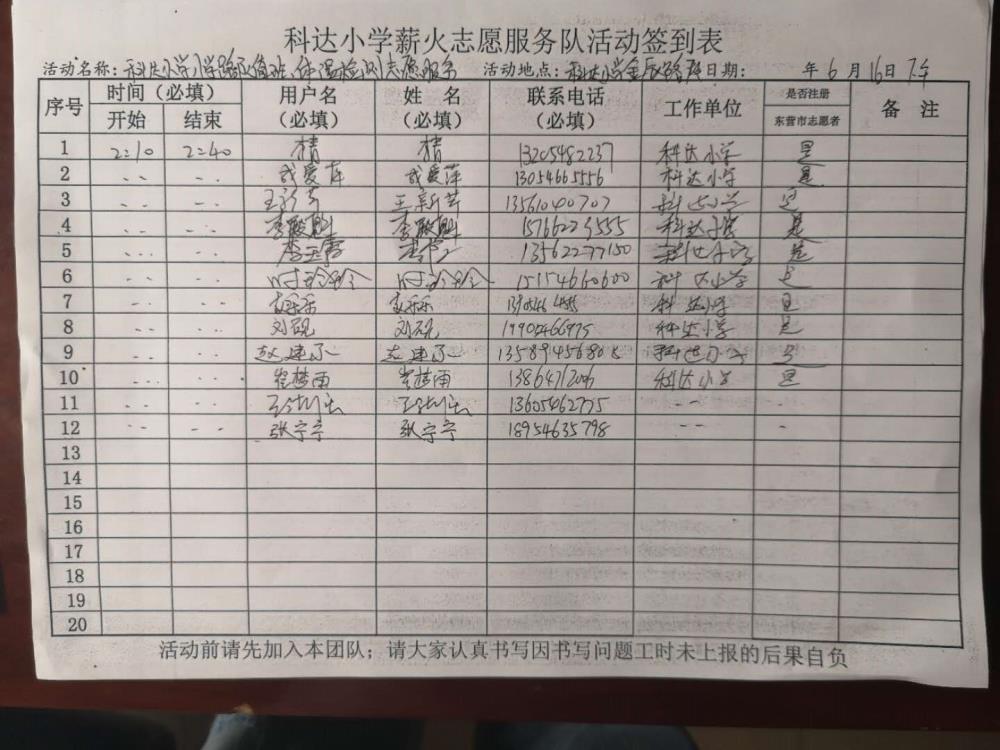 科达小学薪火志愿服务队活动签到表
活动名称：科达小学 值班、体温检测志愿服务 活动地点：科达小学金辰路 日期： 年 6 月 16日 下午
序号 时间（必填） 用户名（必填） 姓 名（必填） 联系电话（必填） 工作单位 是否注册东营市志愿者 备 注
开始 结束
1 2:10 2:40 13205482237 科达小学 是
2 -- -- 爱萍 爱萍 13054665556 科达小学 是
3 -- -- 王新芳 王新芳 13561040707 科达小学 是
4 -- -- 李 李 科达小学 是
5 -- -- 李 李 13562277150 科达小学 是
6 -- -- 时玲玲 时玲玲 15154660600 科达小学 是
7 -- -- 乐乐 乐乐 科达小学 是
8 -- -- 刘砚 刘砚 科达小学 是
9 -- -- 赵建 赵建 科达小学 是
10 -- -- 崔梦雨 崔梦雨 科达小学 是
11 -- -- 王 王 13605462775 -- -
12 -- -- 张宁宁 张宁宁 18954635798 -- -
13
14
15
16
17
18
19
20
活动前请先加入本团队；请大家认真书写因书写问题工时未上报的后果自负